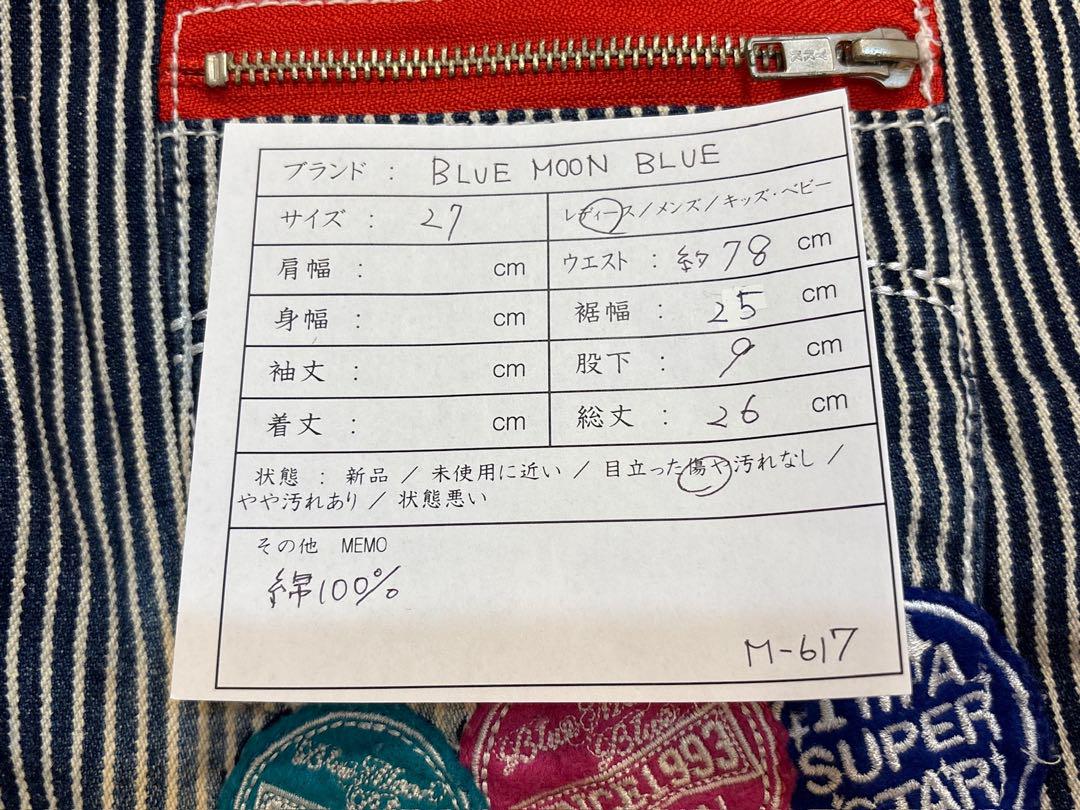 ブランド : BLUE MOON BLUE
サイズ : 27 レディース/メンズ/キッズ・ベビー
肩幅 : cm ウエスト : 約78 cm
身幅 : cm 裾幅 : 25 cm
袖丈 : cm 股下 : 9 cm
着丈 : cm 総丈 : 26 cm
状態 : 新品 / 未使用に近い / 目立った傷や汚れなし /
やや汚れあり / 状態悪い
その他 MEMO
綿100%
M-617
Blue
Blue
Blue
1993
I'M A
SUPER
STAR